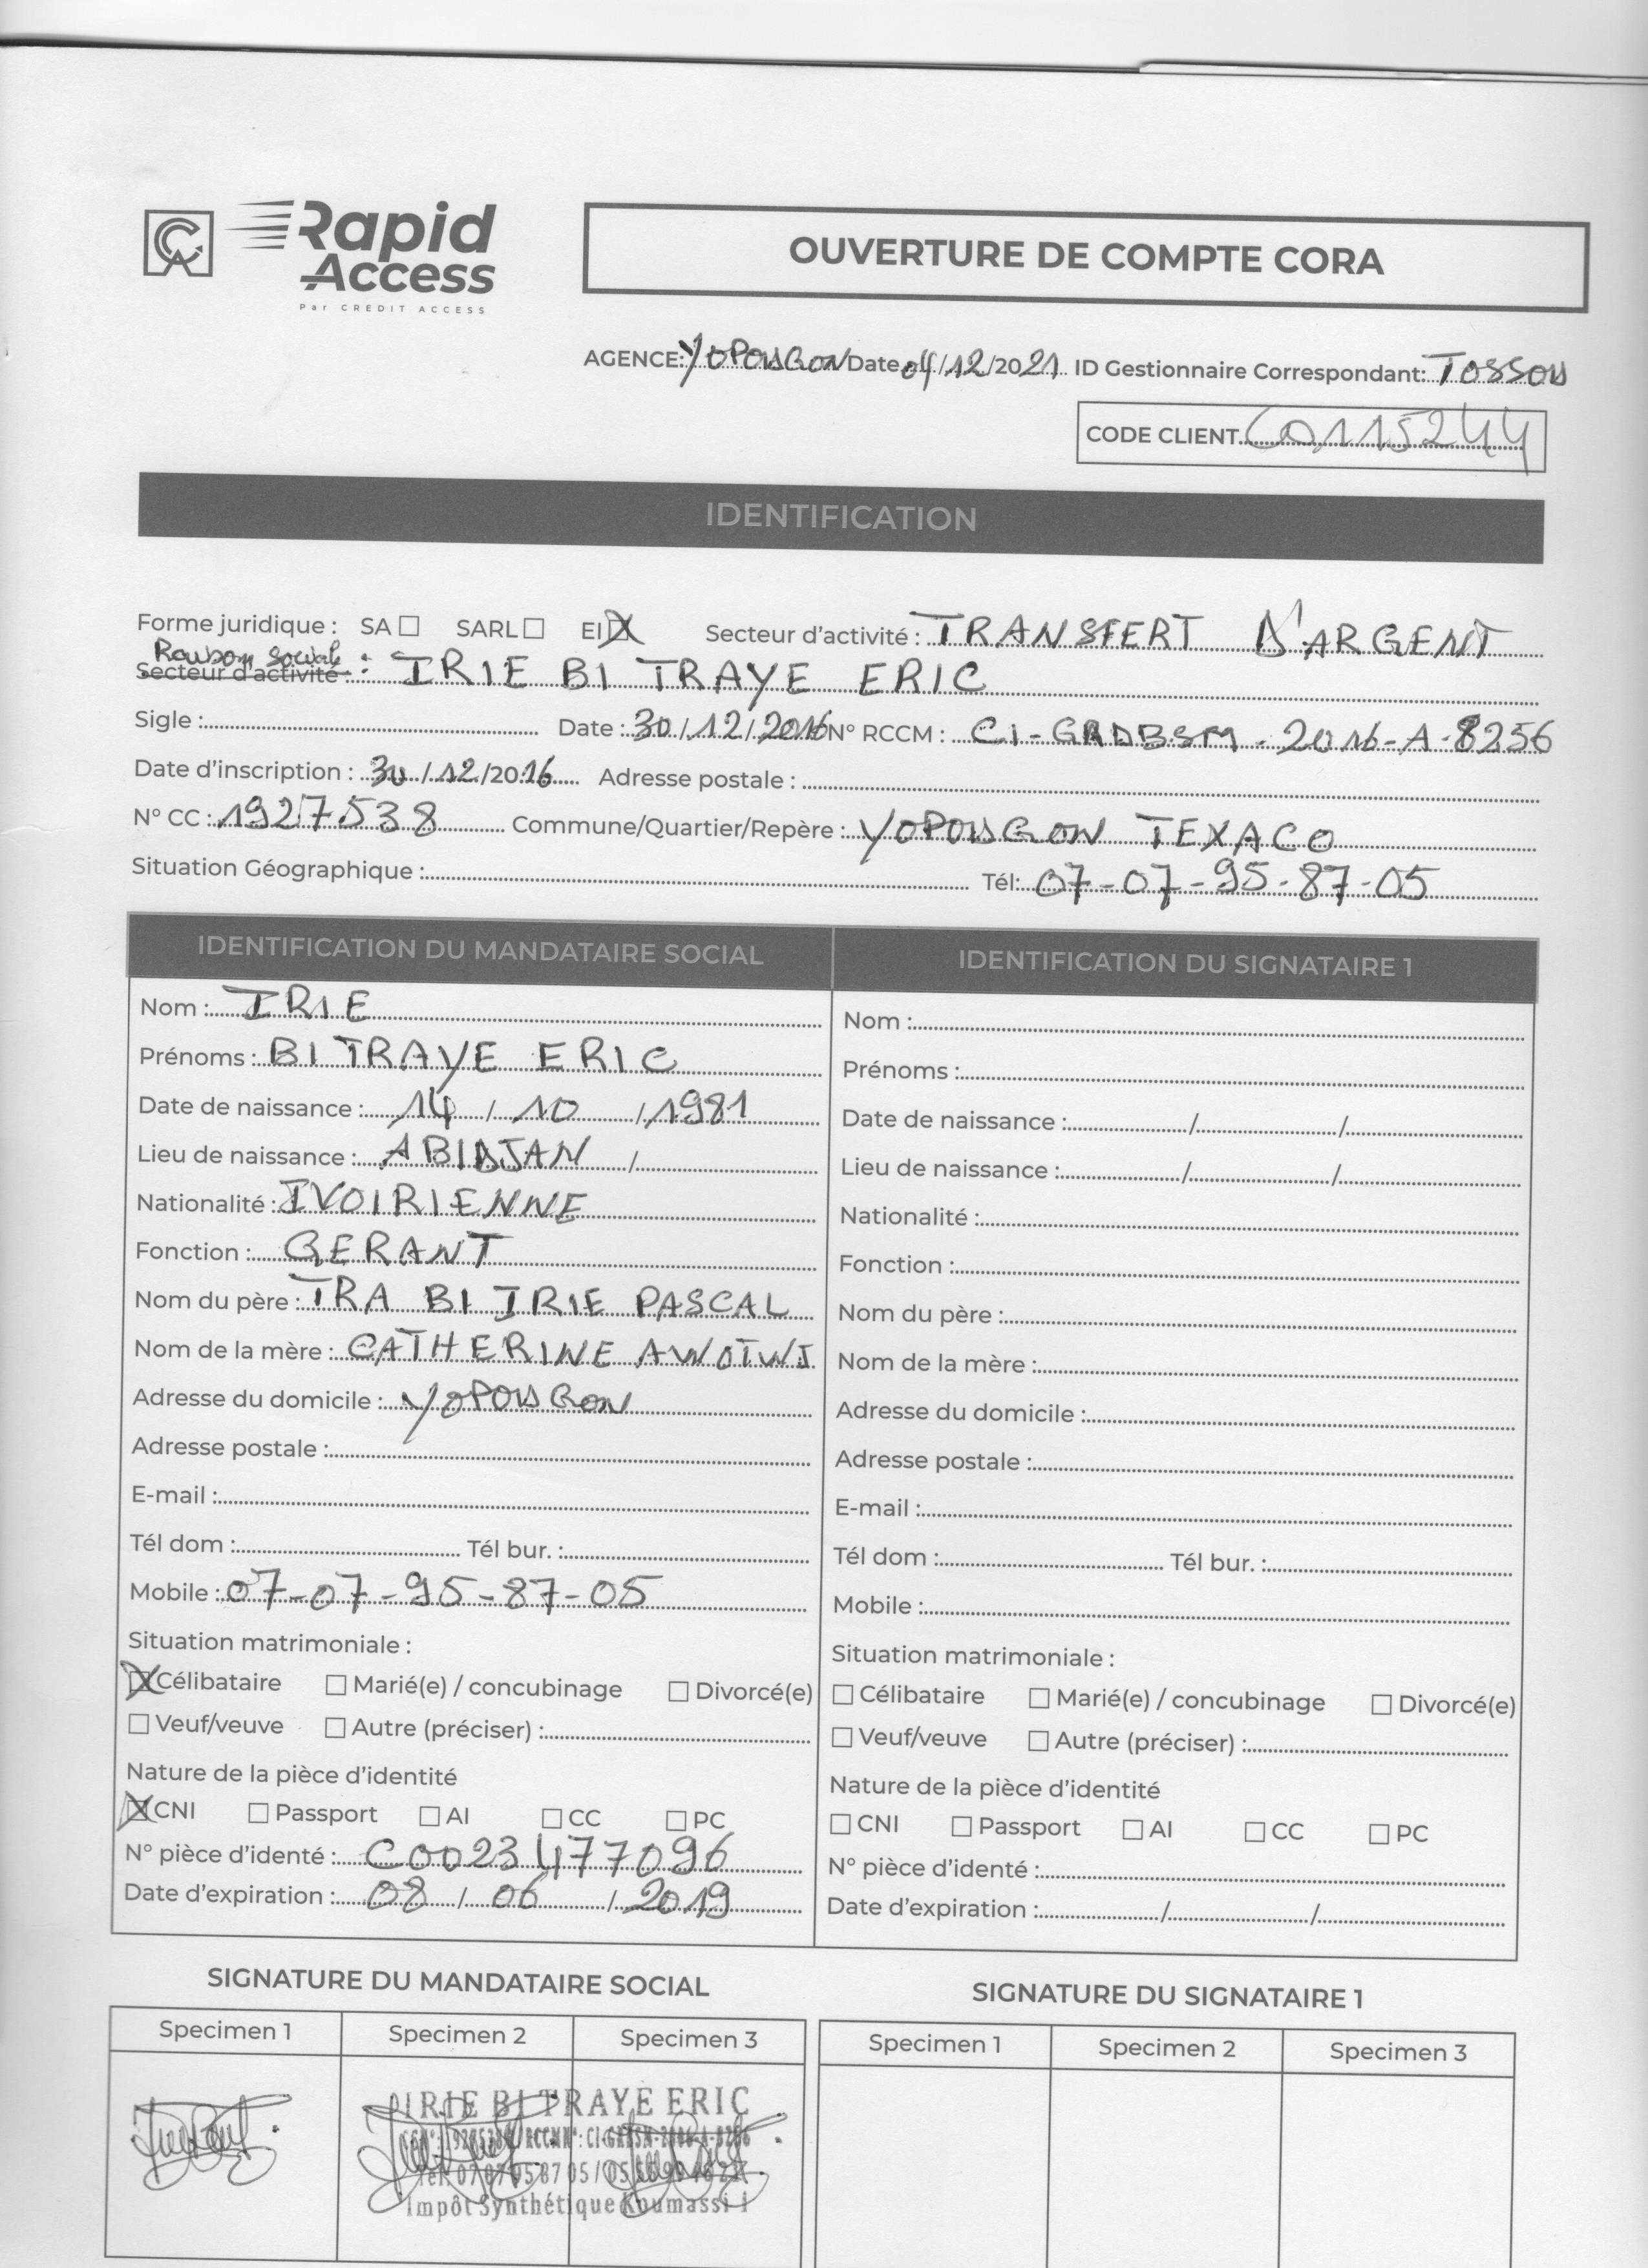 Rapid Access
Par CREDIT ACCESS
OUVERTURE DE COMPTE CORA
AGENCE: YOPOUGON Date 04/12/2021 ID Gestionnaire Correspondant: TOSSOU
CODE CLIENT C0115244
IDENTIFICATION
Forme juridique : SA ☐ SARL ☐ EI ☒ Secteur d'activité : TRANSFERT D'ARGENT
Raison social
Secteur d'activité : IRIE BI TRAYE ERIC
Sigle : Date : 30/12/2016 N° RCCM : Ci-GRDBSM-2016-A-8256
Date d'inscription : 30/12/2016 Adresse postale :
N° CC : 1927538 Commune/Quartier/Repère : YOPOUGON TEXACO
Situation Géographique : Tél: 07-07-95-87-05
IDENTIFICATION DU MANDATAIRE SOCIAL
Nom : IRIE
Prénoms : BI TRAYE ERIC
Date de naissance : 14 / 10 / 1981
Lieu de naissance : ABIDJAN /
Nationalité : IVOIRIENNE
Fonction : GERANT
Nom du père : TRA BI IRIE PASCAL
Nom de la mère : CATHERINE AWOTWI
Adresse du domicile : YOPOUGON
Adresse postale :
E-mail :
Tél dom : Tél bur. :
Mobile : 07-07-95-87-05
Situation matrimoniale :
☒ Célibataire ☐ Marié(e) / concubinage ☐ Divorcé(e)
☐ Veuf/veuve ☐ Autre (préciser) :
Nature de la pièce d'identité
☒ CNI ☐ Passport ☐ AI ☐ CC ☐ PC
N° pièce d'identé : C00234477096
Date d'expiration : 08 / 06 / 2019
IDENTIFICATION DU SIGNATAIRE 1
Nom :
Prénoms :
Date de naissance : / /
Lieu de naissance : / /
Nationalité :
Fonction :
Nom du père :
Nom de la mère :
Adresse du domicile :
Adresse postale :
E-mail :
Tél dom : Tél bur. :
Mobile :
Situation matrimoniale :
☐ Célibataire ☐ Marié(e) / concubinage ☐ Divorcé(e)
☐ Veuf/veuve ☐ Autre (préciser) :
Nature de la pièce d'identité
☐ CNI ☐ Passport ☐ AI ☐ CC ☐ PC
N° pièce d'identé :
Date d'expiration : / /
SIGNATURE DU MANDATAIRE SOCIAL
Specimen 1 Specimen 2 Specimen 3
IRIE BI TRAYE ERIC
Impôt Synthétique Koumassi I
SIGNATURE DU SIGNATAIRE 1
Specimen 1 Specimen 2 Specimen 3